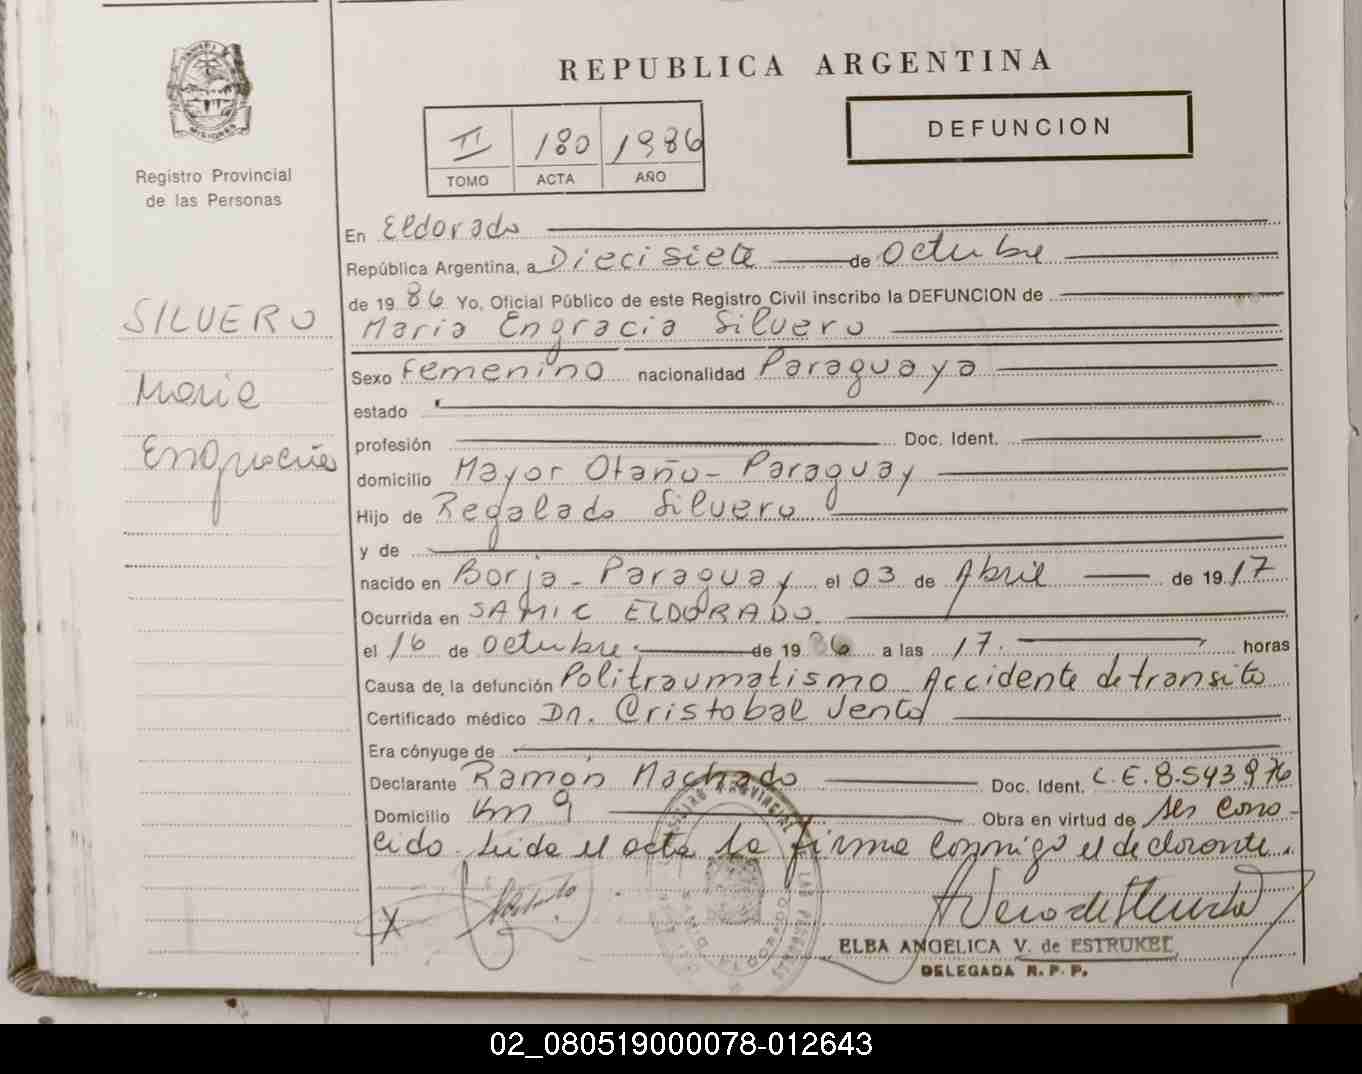 REPUBLICA ARGENTINA
MISIONES
Registro Provincial
de las Personas
II 180 1986
TOMO ACTA AÑO
DEFUNCION
SILVERO
Maria
Engracia
En Eldorado
República Argentina, a Diecisiete de Octubre
de 1986 Yo, Oficial Público de este Registro Civil inscribo la DEFUNCION de
Maria Engracia Silvero
Sexo Femenino nacionalidad Paraguaya
estado
profesión Doc. Ident.
domicilio Mayor Otaño - Paraguay
Hijo de Regalado Silvero
y de
nacido en Borja - Paraguay el 03 de Abril de 1917
Ocurrida en SAMIC ELDORADO
el 16 de Octubre de 1986 a las 17. horas
Causa de la defunción Politraumatismo Accidente de transito
Certificado médico Dr. Cristobal
Era cónyuge de
Declarante Ramón Machado Doc. Ident. C.E. 8.543.976
Domicilio Km 9 Obra en virtud de ser cono-
cido. Leida el acta la firma conmigo el declarante.
X
ELBA ANGELICA V. de ESTRUKEL
DELEGADA R. P. P.
02_080519000078-012643